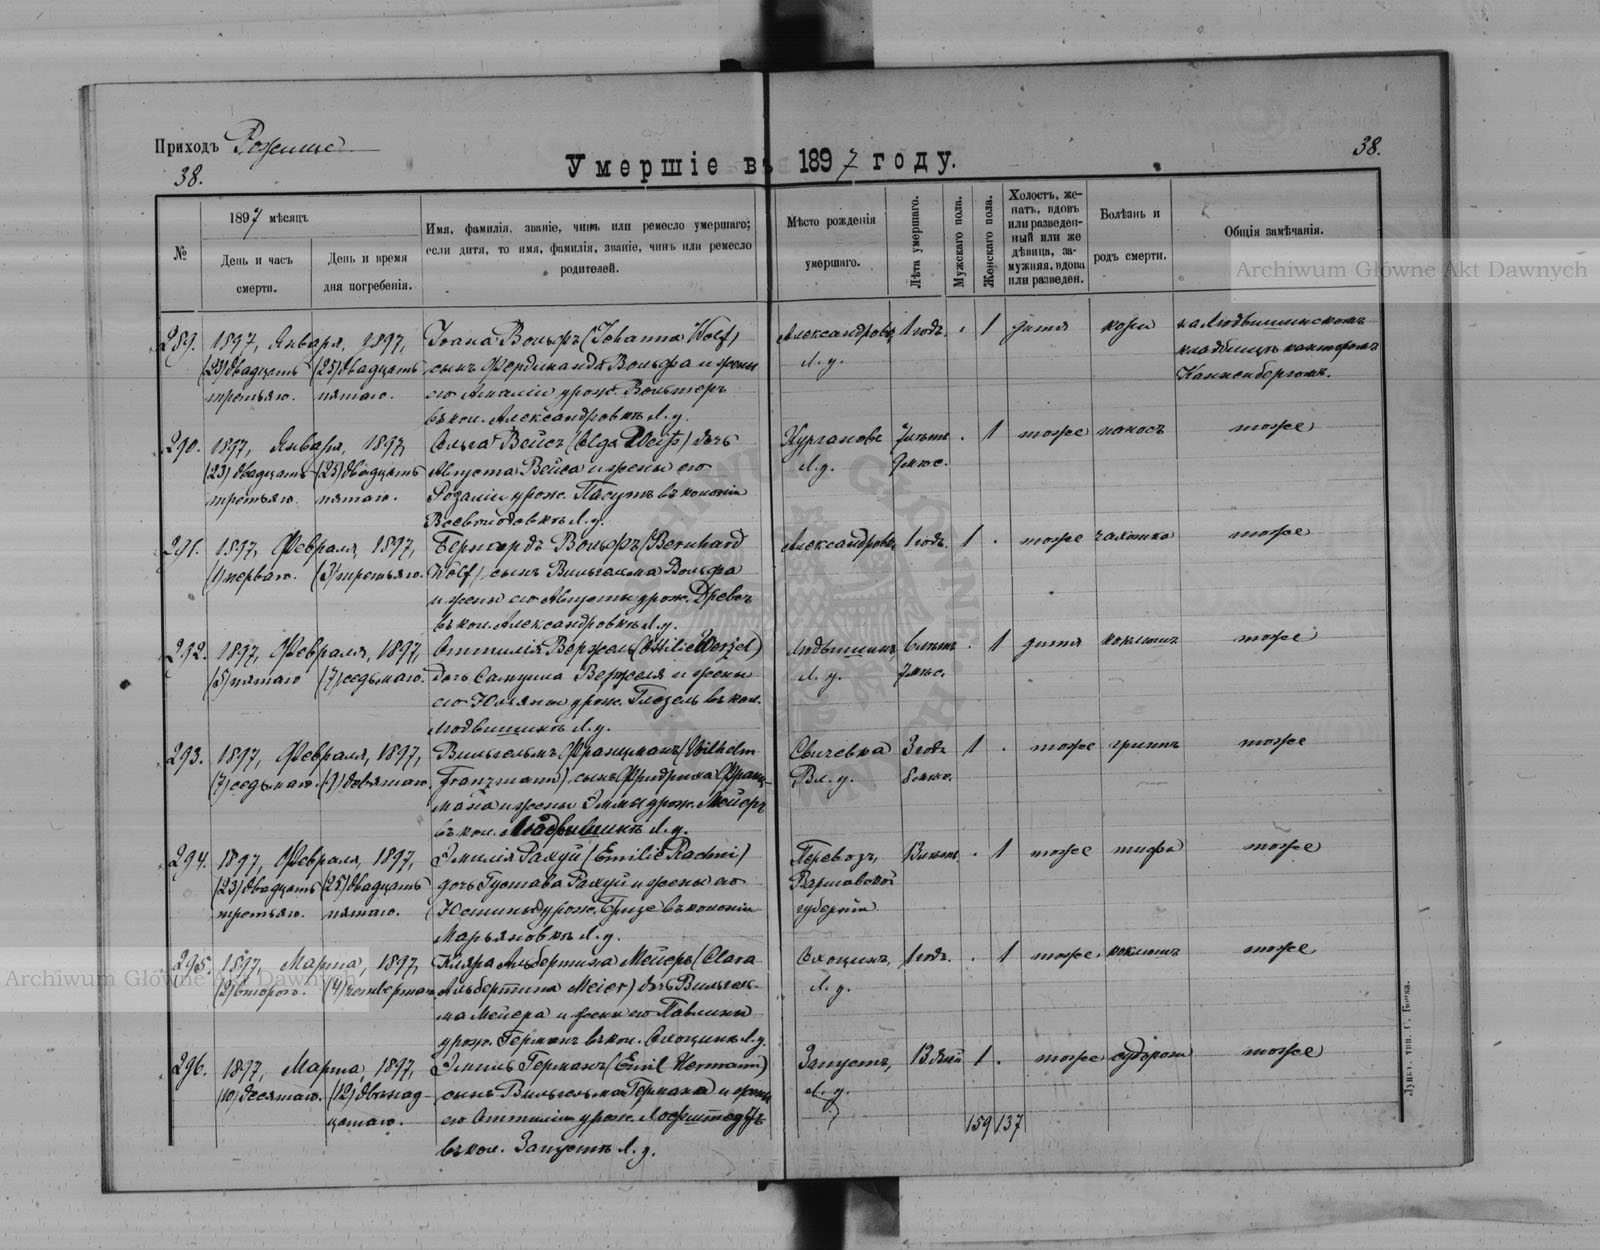 Приходъ Рожище
38.
Умершіе въ 1897 году.
38.
№
1897 мѣсяцъ
День и часъ смерти.
День и время дня погребенія.
Имя, фамилія, званіе, чинъ или ремесло умершаго;
если дитя, то имя, фамилія, званіе, чинъ или ремесло
родителей.
Мѣсто рожденія
умершаго.
Лѣта умершаго.
Мужскаго пола.
Женскаго пола.
Холостъ, же-
натъ, вдовъ
или разведен-
ный или же
дѣвица, за-
мужняя, вдова
или разведен.
Болѣзнь и
родъ смерти.
Общія замѣчанія.
Archiwum Główne Akt Dawnych
289. 1897, Января, 1897, Іоана Вольфъ (Johanna Wolf) Александровк, 1 годъ. . 1 дитя кори на Людвишинскомъ
(23) двадцать (25) двадцать сынъ Фердинанда Вольфа и жены Л. у. кладбищѣ канторомъ
третьяго. пятаго. его Амаліи урож. Вольтеръ Канненбергомъ.
въ кол. Александровкѣ Л. у.
290. 1897, Января, 1897, Ольга Вейсъ (Olga Weiß) дочь 7 лѣтъ . 1 тоже поносъ тоже
(23) двадцать (25) двадцать Августа Вейса и жены его Л. у. 7 мѣс.
третьяго. пятаго. Розаліи урож. въ колоніи
Л. у.
291. 1897, Февраля, 1897, Бернгордъ Вольфъ (Bernhard Александровк, 1 годъ. 1 . тоже тоже
(1) перваго. (3) третьяго. Wolf) сынъ Вильгельма Вольфа
и жены его Августы урож. Древсъ
въ кол. Александровкѣ Л. у.
292. 1897, Февраля, 1897, Оттилія Вержель (Ottilie Werzel) Людвишинъ, 6 лѣтъ . 1 дитя коклюшъ тоже
(5) пятаго (7) седьмаго. дочь Самуила Вержеля и жены Л. у. 7 мѣс.
его Юліяны урож. Глезель въ кол.
Людвишинѣ Л. у.
293. 1897, Февраля, 1897, Вильгельмъ Францманъ (Wilhelm Свичевка 3 года 1 . тоже гриппъ тоже
(7) седьмаго. (9) девятаго. Franzmann) сынъ Фридриха Франц- Вл. у. 8 мѣс.
мана и жены Эммы урож. Мейеръ
въ кол. Людвишинѣ Л. у.
294. 1897, Февраля, 1897, Эмилія Рахуй (Emilie Rachui) Перевозъ, 13 лѣтъ. . 1 тоже тифа тоже
(23) двадцать (25) двадцать дочь Густава Рахуй и жены его Варшавской
третьяго. пятаго. Юстины урож. Бризе въ колоніи губерніи
Марьяновкѣ Л. у.
295. 1897, Марта, 1897, Кляра Альбертина Мейеръ (Clara 1 годъ. . 1 тоже. коклюшъ тоже
(2) второго. (4) четвертаго. Альбертина Meier) дочь Вильгель- Л. у.
ма Мейера и жены его Павлины
урож. Германъ въ кол. Л. у.
Archiwum Główne Akt Dawnych
296. 1897, Марта, 1897, Эмиль Германъ (Emil Hermann) Запустъ, 13 дней 1 . тоже судороги тоже
(10) десятаго. (12) двенад- сынъ Вильгельма Германа и жены Л. у.
цатаго. его Оттиліи урож.
въ кол. Запустѣ Л. у.
159 137